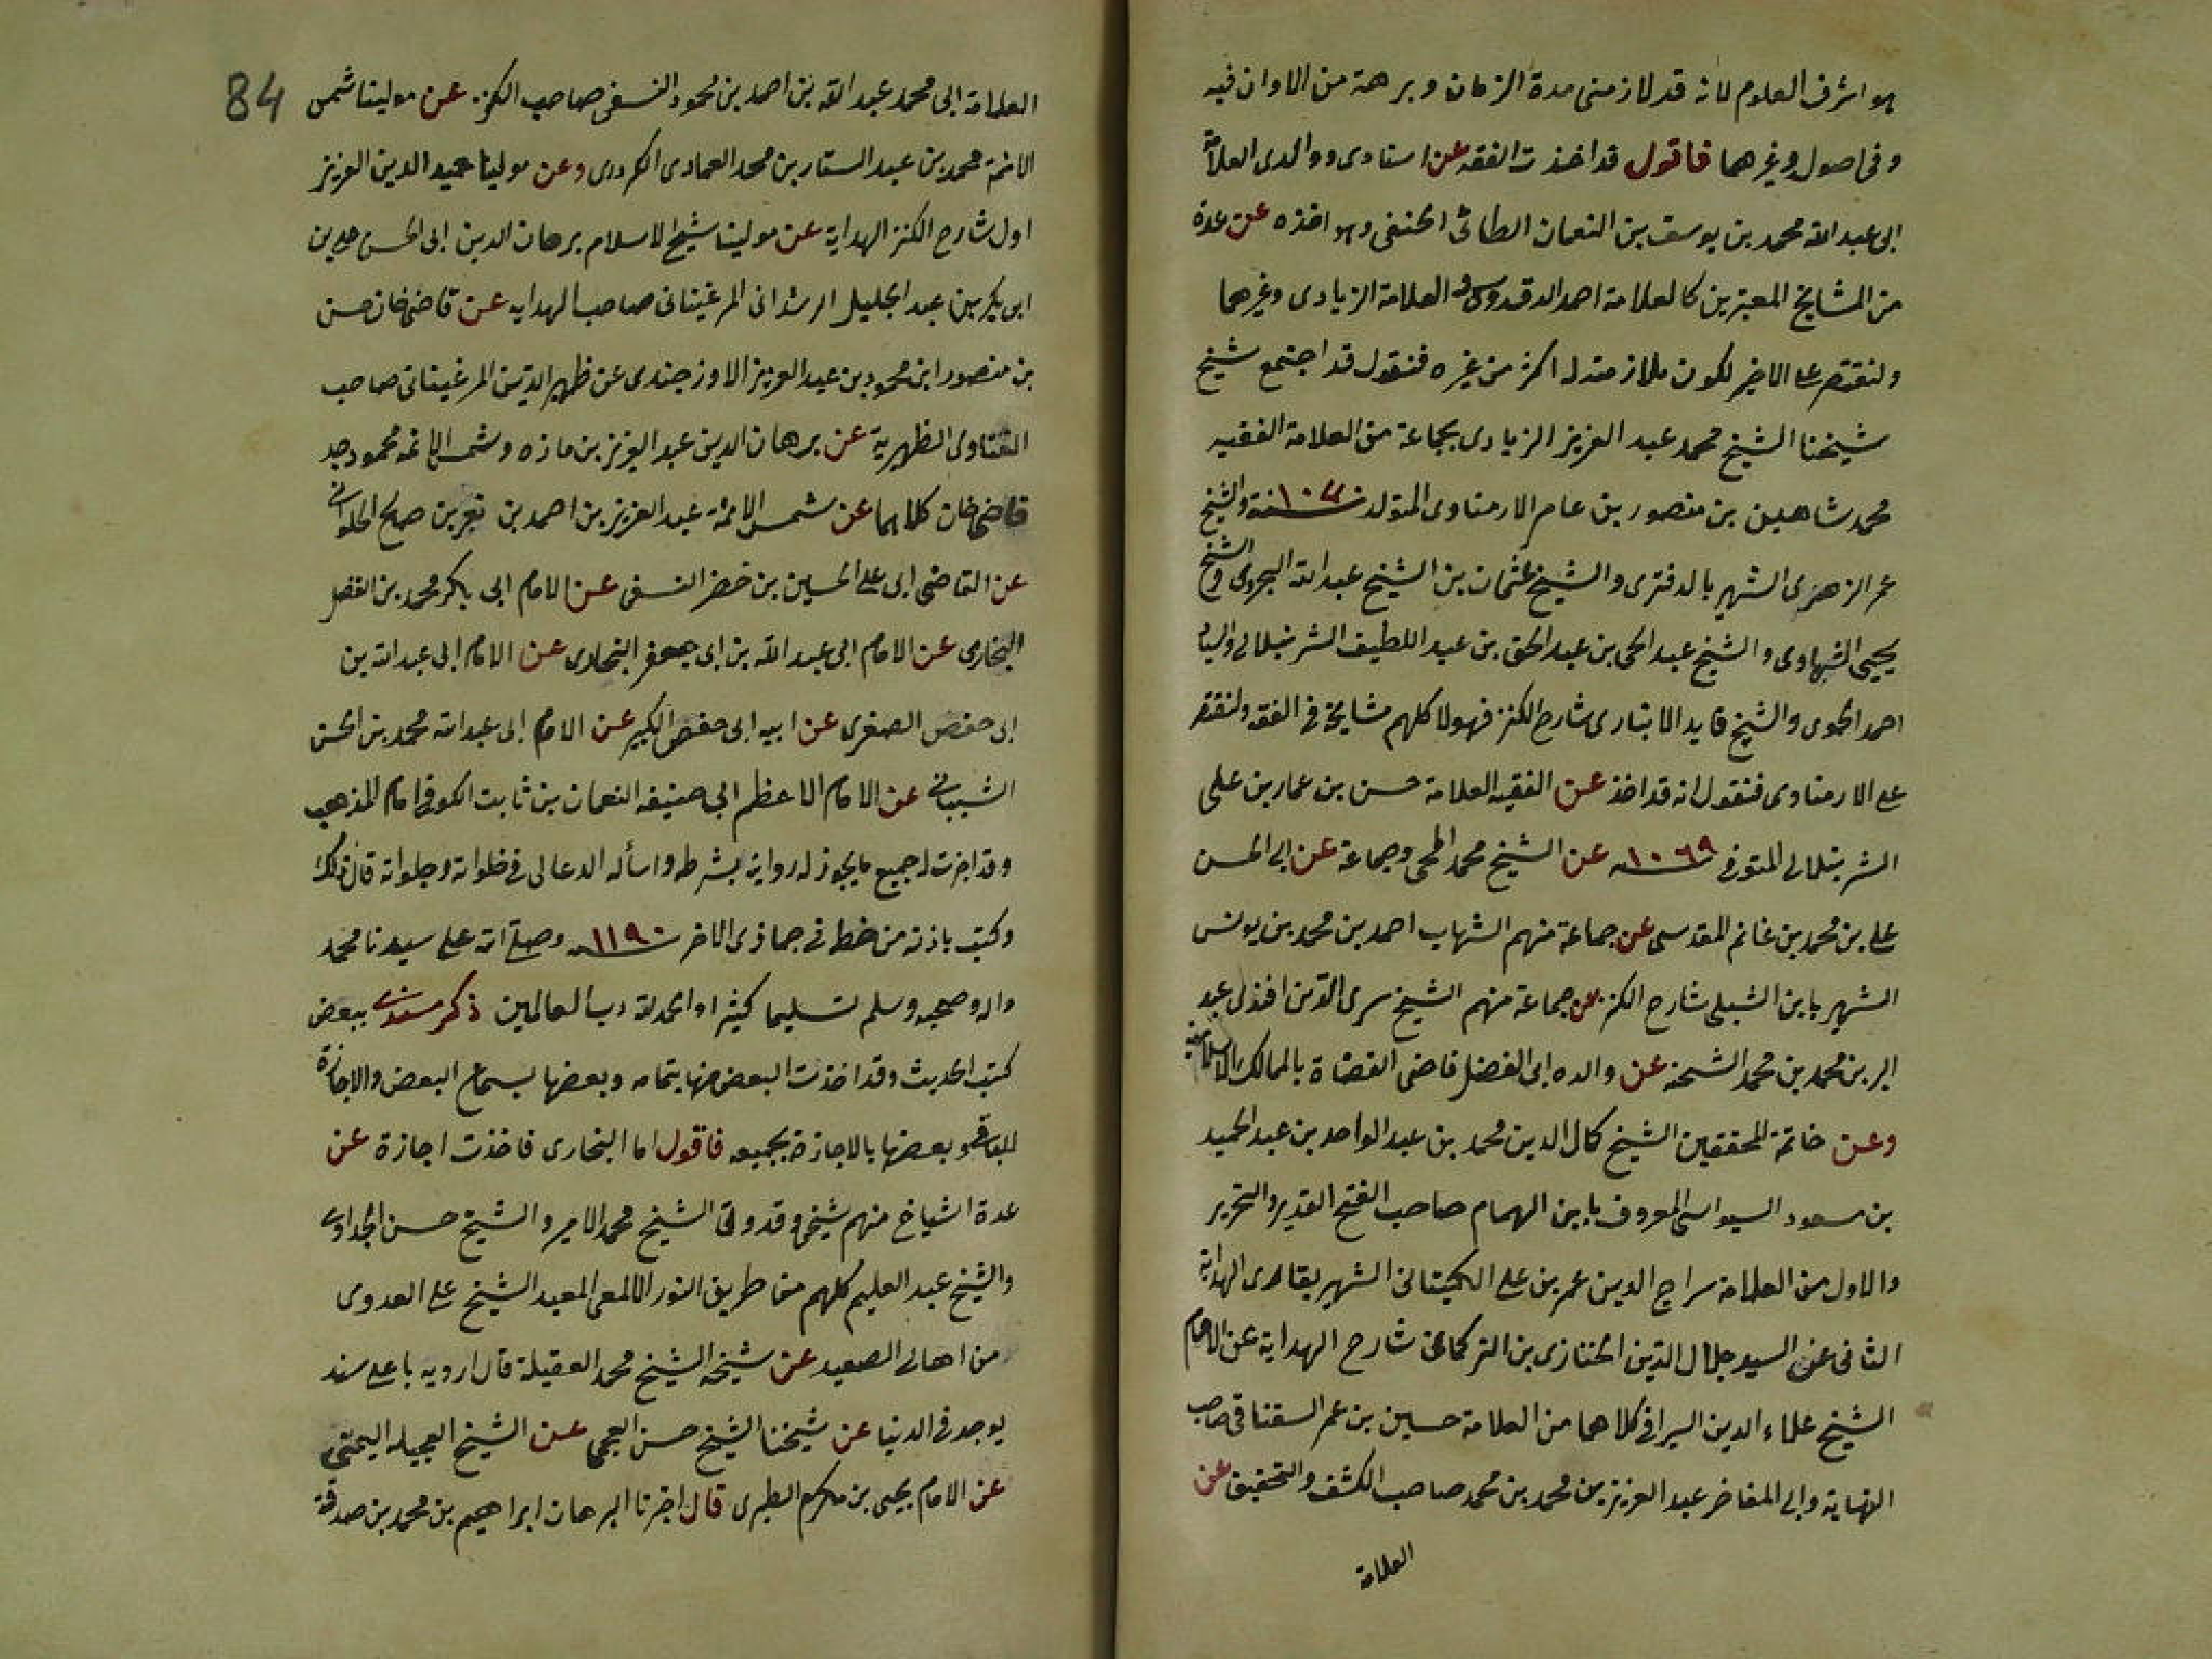 هو اشرف العلوم لانه قد لازمنى مدة الزمان وبرهة من الاوان فيه
وفى اصوله وغيرهما فاقول قد اخذت الفقه عن استادى ووالدى العلامة
ابى عبد الله محمد بن يوسف بن النعمان الطائى الحنفى وهو اخذه عن عدة
من المشايخ المعتبرين كالعلامة احمد الدقدوسى والعلامة الزيادى وغيرهما
ولنقتصر على الاخير لكون ملازمته له اكثر من غيره فنقول قد اجتمع شيخ
شيخنا الشيخ محمد عبد العزيز الزيادى بجماعة من العلامة الفقيه
محمد شاهين بن منصور بن عامر الارمناوى المتولد والشيخ
عمر الزهرى الشهير بالدفترى والشيخ عثمان بن الشيخ عبد الله البحروى والشيخ
يحيى الشهاوى والشيخ عبد الحى بن عبد الحق بن عبد اللطيف الشرنبلالى والسيد
احمد الحموى والشيخ قايد الابيارى شارح الكنز فهولا كلهم مشايخى فى الفقه ولنقتصر
على الارمناوى فنقول انه قد اخذ عن الفقيه العلامة حسن بن عمار بن على
الشرنبلالى المتوفى ١٠٦٩ سنه عن الشيخ محمد المحبى وجماعة عن ابى الحسن
على بن محمد بن غانم المقدسى عن جماعة منهم الشهاب احمد بن محمد بن يونس
الشهير بابن الشبلى شارح الكنز عن جماعة منهم الشيخ سرى الدين افندى عبد
البر بن محمد بن محمد الشحنه عن والده ابى الفضل قاضى القضاة بالممالك الاسلامية
وعن خاتمة المحققين الشيخ كمال الدين محمد بن عبد الواحد بن عبد الحميد
بن مسعود السيواسى المعروف بابن الهمام صاحب الفتح القدير والتحرير
والاول من العلامة سراج الدين عمر بن على الكجيتانى الشهير بقارى الهداية
الثانى عن السيد جلال الدين الخنازى بن التركمانى شارح الهداية عن الامام
الشيخ علاء الدين السيرافى كلاهما من العلامة حسين بن عمر السقناقى صاحب
النهاية وابى المفاخر عبد العزيز بن محمد بن محمد صاحب الكشف والتحقيق عن
العلامة
84
العلامة ابى محمد عبد الله بن احمد بن محمود النسفى صاحب الكنز عن مولينا شمس
الائمة محمد بن عبد الستار بن محمد العمادى الكردرى وعن مولينا حميد الدين العزيز
اول شارح الكنز الهداية عن مولينا شيخ الاسلام برهان الدين ابى الحسن على بن
ابى بكر بن عبد الجليل الرشدانى المرغينانى صاحب الهدايه عن قاضى خان حسن
بن منصور ابن محمود بن عبد العزيز الاوزجندى عن ظهير الدين المرغينانى صاحب
الفتاوى الظهيرية عن برهان الدين عبد العزيز بن مازه وشمس الائمه محمود جد
قاضى خان كلاهما عن شمس الائمة عبد العزيز بن احمد بن نصر بن صالح الحلوانى
عن القاضى ابى على الحسين بن خضر النسفى عن الامام ابى بكر محمد بن الفضل
البخارى عن الامام ابى عبد الله بن ابى جعفر البخارى عن الامام ابى عبد الله بن
ابى حفص الصغرى عن ابيه ابى حفص الكبير عن الامام ابى عبد الله محمد بن الحسن
الشيبانى عن الامام الاعظم ابى حنيفه النعمان بن ثابت الكوفى امام المذهب
وقد اجزت له جميع ما يجوز له روايته بشرطه واسأله الدعا لى فى خلواته وجلواته قال ذلك
وكتب باذنه من خطه فى جماذى الاخر ١١٩٠ سنه وصلى الله على سيدنا محمد
واله وصحبه وسلم تسليما كثيرا والحمد لله رب العالمين ذكر سندى ببعض
كتب الحديث وقد اخذت البعض منها بتمامه وبعضها بسماع البعض والاجازة
للباقى وبعضها بالاجازة بجميعه فاقول اما البخارى فاخذت اجازة عن
عدة اشياخ منهم شيخى وقدوتى الشيخ محمد الامير والشيخ حسن الجداوى
والشيخ عبد العليم كلهم من طريق النور الالمعى المعيد الشيخ على العدوى
من اهالى الصعيد عن شيخه الشيخ محمد العقيلة قال ارويه باعلى سند
يوجد فى الدنيا عن شيخنا الشيخ حسن العجمى عن الشيخ العجيله اليمنى
عن الامام يحيى بن مكرم الطبرى قال اخبرنا البرهان ابراهيم بن محمد بن صدقة